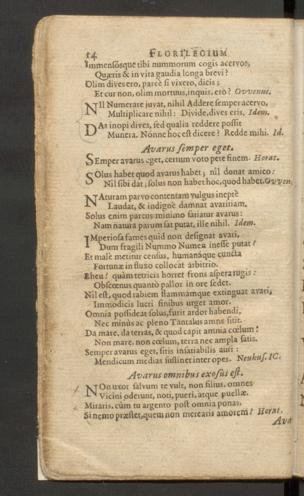 14 FLORILEGIUM
Immensósque tibi nummorum cogis acervos,
Quæris & in vita gaudia longa brevi?
Olim dives ero, parce si vixero, dicis;
Et cur non, olim mortuus, inquis, erò? Ovvenni.
NIl Numerate juvat, nihil Addere semper acervo,
Multiplicare nihil: Divide, dives eris, Idem.
DAt inopi dives, sed qualia reddere possit
Munera. Nónne hoc est dicere? Redde mihi. Id.
Avarus semper eget.
SEmper avarus eget, certum voto pete finem. Horat.
SOlus habet quod avarus habet; nil donat amico:
Nil sibi dat; solus non habet hoc, quod habet. Ovven
NAturam parvo contentam vulgus ineptè
Laudat, & indignè damnat avaritiam,
Solus enim parcus minimo satiatur avarus:
Nam natura parum sat putat, ille nihil. Idem.
IMperiosa fames quid non designat avari,
Dum fragili Nummo Numen inesse putat?
Et malè metitur census, humanáque cuncta
Fortunæ in fluxo collocat arbitrio.
Eheu! quàm tetricis horret frons aspera rugis:
Obscœnus quantò pallor in ore sedet.
Nil est, quod rabiem flammámque extinguat avari,
Immodicis lucri finibus urget amor.
Omnia possideat solus, furit ardor habendi,
Nec minùs ac pleno Tantalus amne sitit.
Da mare, da terras, & quod capit omnia cœlum!
Non mare, non cœlum, terra nec ampla satis.
Semper avarus eget, sitis insatiabilis auri:
Mendicum medias sustinet inter opes. Neukus. IC.
Avarus omnibus exosus est.
NOn uxor salvum te vult, non filius, omnes
Vicini oderunt, noti, pueri, atque puellæ.
Miraris, cùm tu argento post omnia ponas,
Si nemo præstet, quem non merearis amorem? Horat.
Ava